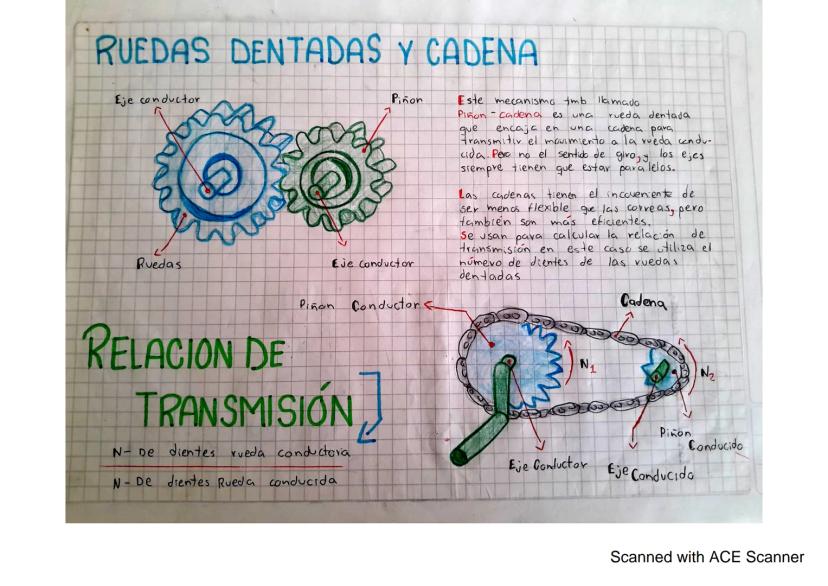 RUEDAS DENTADAS Y CADENA
Eje conductor
Piñon
Ruedas
Eje conductor
Este mecanismo tmb llamado
Piñon-cadena es una rueda dentada
que encaja en una cadena para
transmitir el movimiento a la rueda condu-
cida. Pero no el sentido de giro, y los ejes
siempre tienen que estar paralelos.
Las cadenas tienen el incoveniente de
ser menos flexible que las correas, pero
también son más eficientes.
Se usan para calcular la relación de
transmisión en este caso se utiliza el
número de dientes de las ruedas
dentadas
Piñon Conductor
Cadena
N1
N2
Piñon
Conducido
Eje Conductor
Eje Conducido
RELACION DE
TRANSMISIÓN
N- De dientes rueda conductora
N- De dientes Rueda conducida
Scanned with ACE Scanner